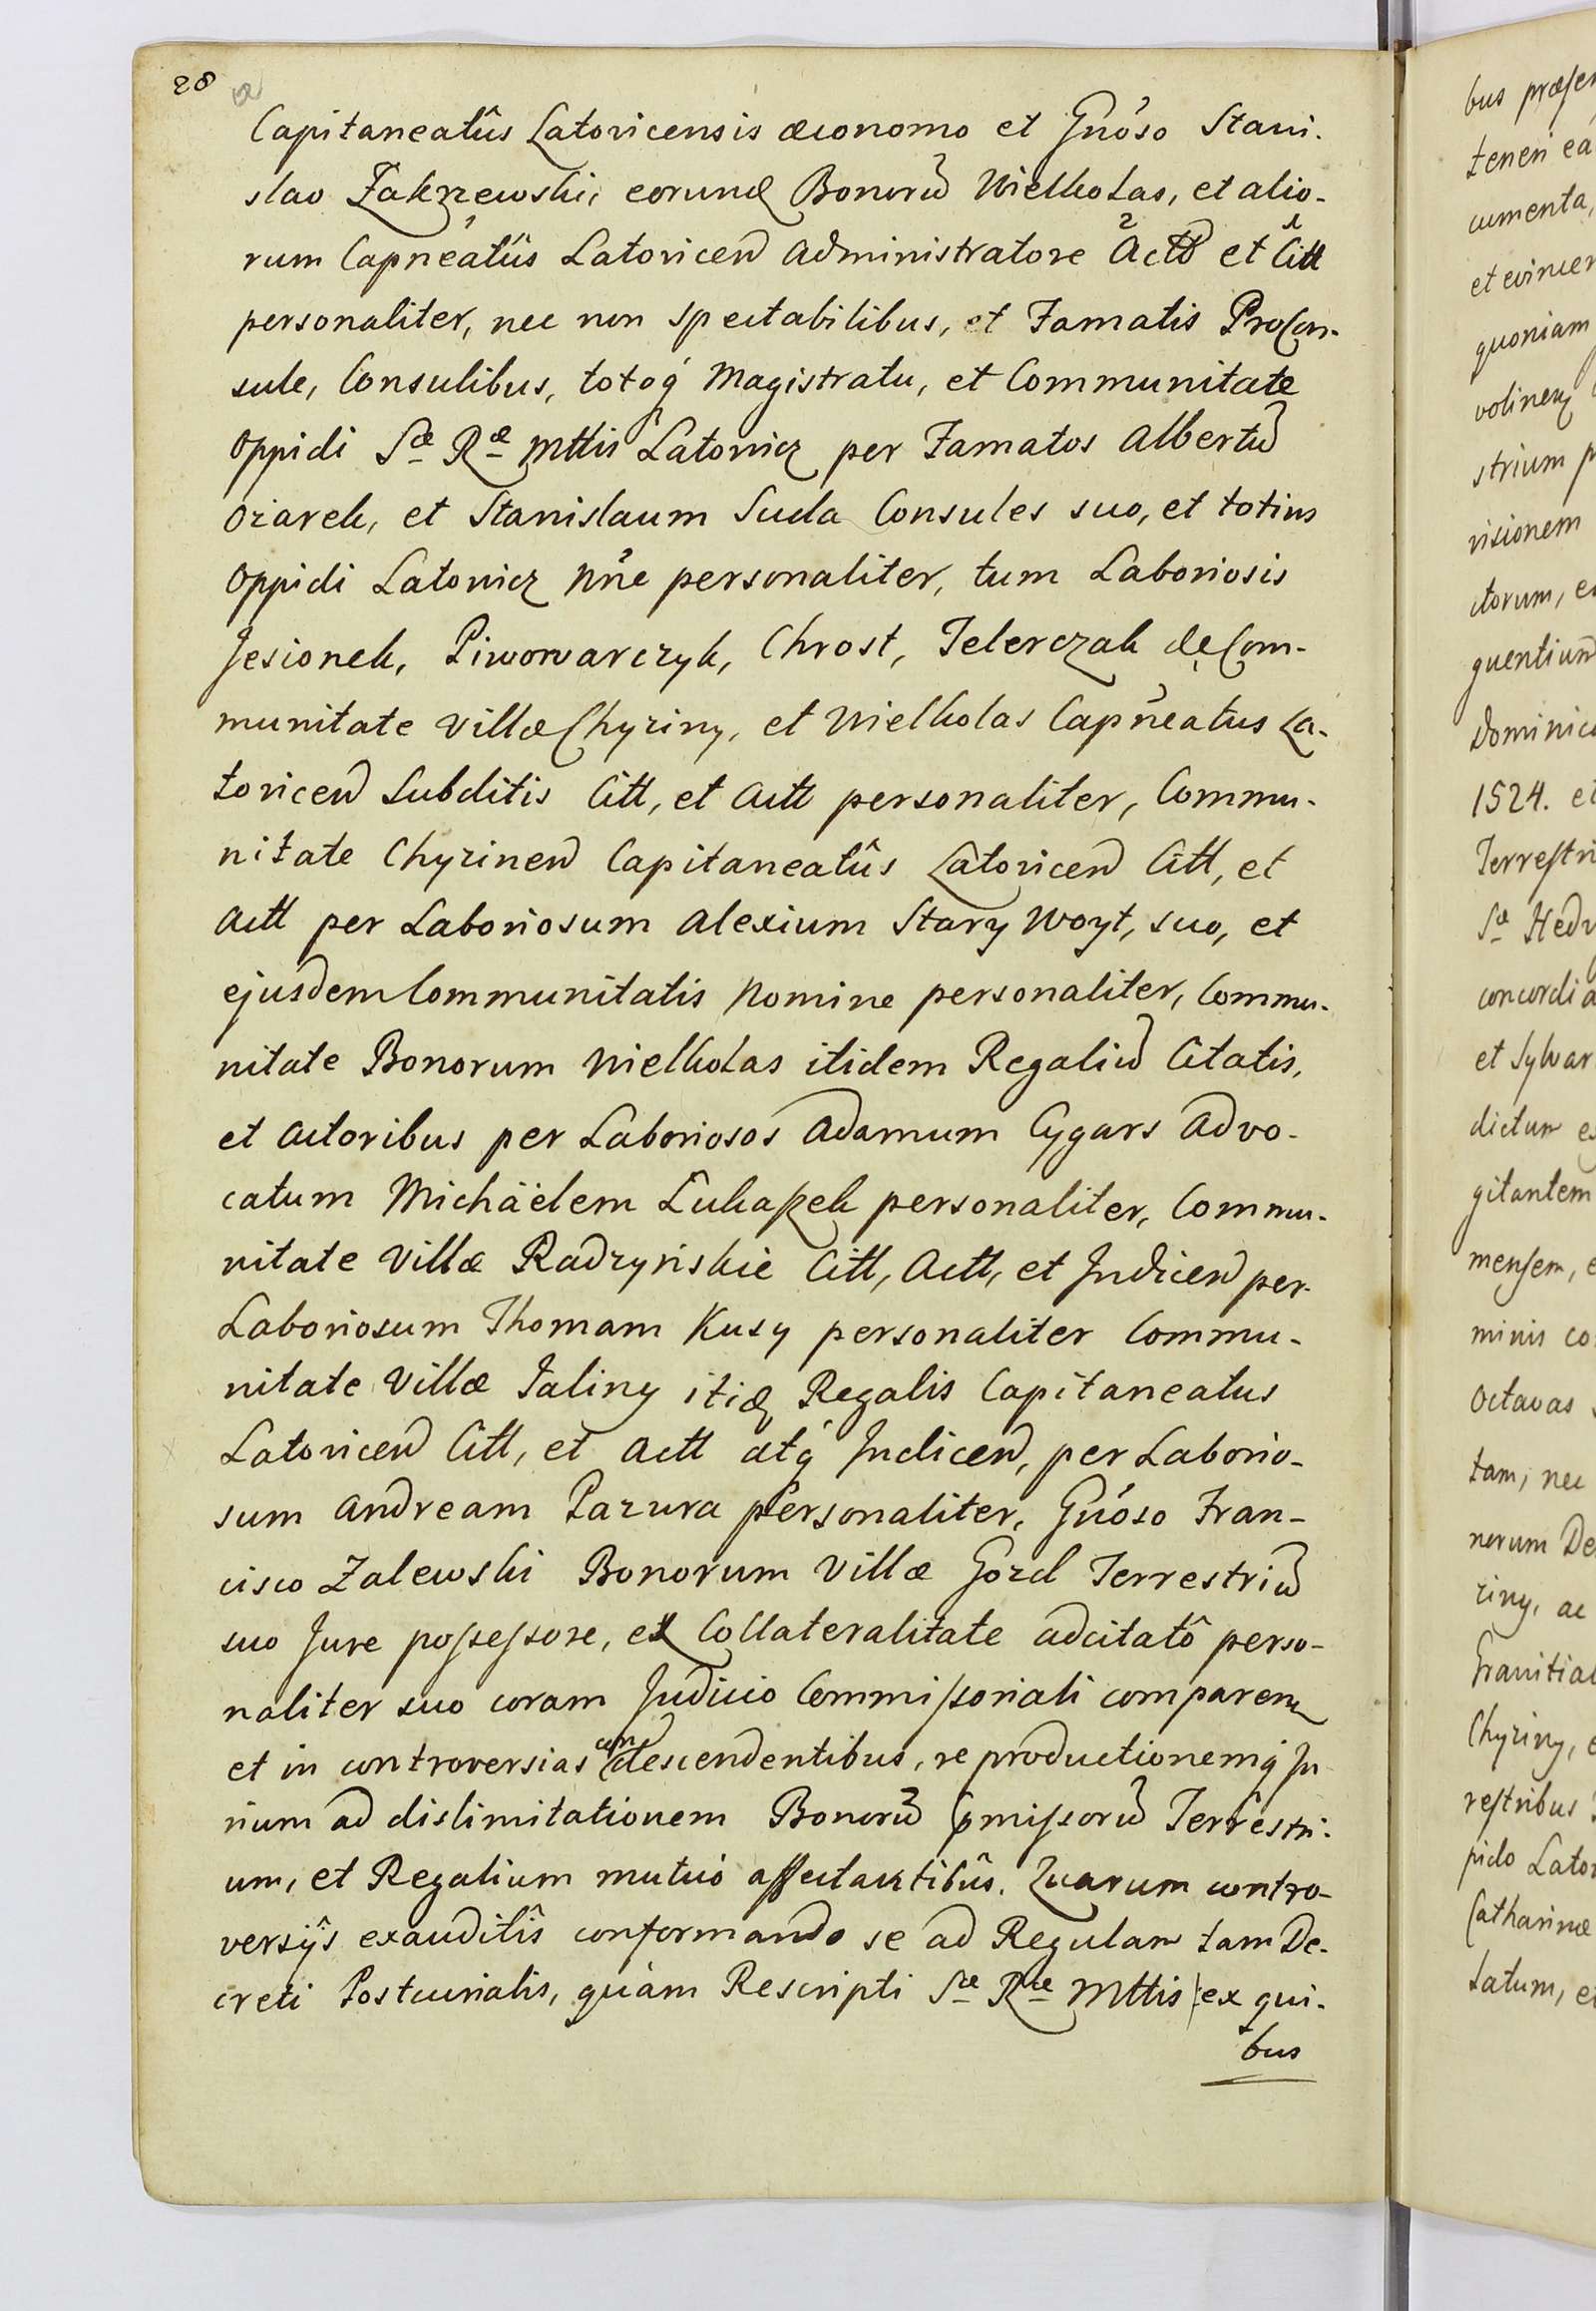 28
Capitaneatûs Latovicensis œconomo et Gnóso Stani.
slao Zakrzewski, eorund Bonorũ Wielkolas, et alio-
rum Capneatûs Latovicen Administratore Actt et Citt
personaliter, nec non spectabilibus, et Famatis ProCon-
sule, Consulibus, totoq́ Magistratu, et Communitate
Oppidi Sæ Ræ Mttis Latovicz per Famatos Albertũ
Oziarek, et Stanislaum Suda Consules suo, et totius
Oppidi Latovicz Nñe personaliter, tum Laboriosis
Jesionek, Piworvarczyk, Chrost, Telerczak de Com-
munitate villæ Chyziny, et Wielkolas Capneatus La-
tovicen Subditis Citt, et Actt personaliter, Commu-
nitate Chyzinen Capitaneatûs Latovicen Citt, et
Actt per Laboriosum Alexium Stary Woyt, suo, et
ejusdem Communitatis Nomine personaliter, Commu-
nitate Bonorum Wielkolas itidem Regaliũ Citatis,
et Actoribus per Laboriosos Adamum Cygars Advo-
catum Michäelem Łukaszek personaliter, Commu-
nitate Villæ Radzyńskie Citt, Actt, et Indicen per
Laboriosum Thomam Kusy personaliter Commu-
nitate Villæ Jaliny itid Regalis Capitaneatus
Latovicen Citt, et Actt atq́ Indicen, per Laborio-
sum Andream Pazura personaliter, Gnóso Fran-
cisco Zalewski Bonorum Villæ Gozd Terrestriũ
suo Jure possessore, ex Collateralitate adcitatô perso-
naliter suo coram Judicio Commissoriali comparen
et in controversias condescendentibus, reproductionemq́ Ju
rium ad dislimitationem Bonorũ pmissorũ Terrestri-
um, et Regalium mutuò affectantibûs. Quarum contro-
versijs exauditîs conformando se ad Regulam tam De-
creti Postcurialis, quàm Rescripti Sæ Ræ Mttis |: ex qui-
bus
bus
teneri eá
cumenta,
quoniam
strium
visionem
1524. et
Sæ
et Sylvar
dictum
gitantem
mensem,
minis co
Octavas
tam, nec
norum De
ziny, ac
Chyziny,
pido Lato
Catharinæ
tatum, e